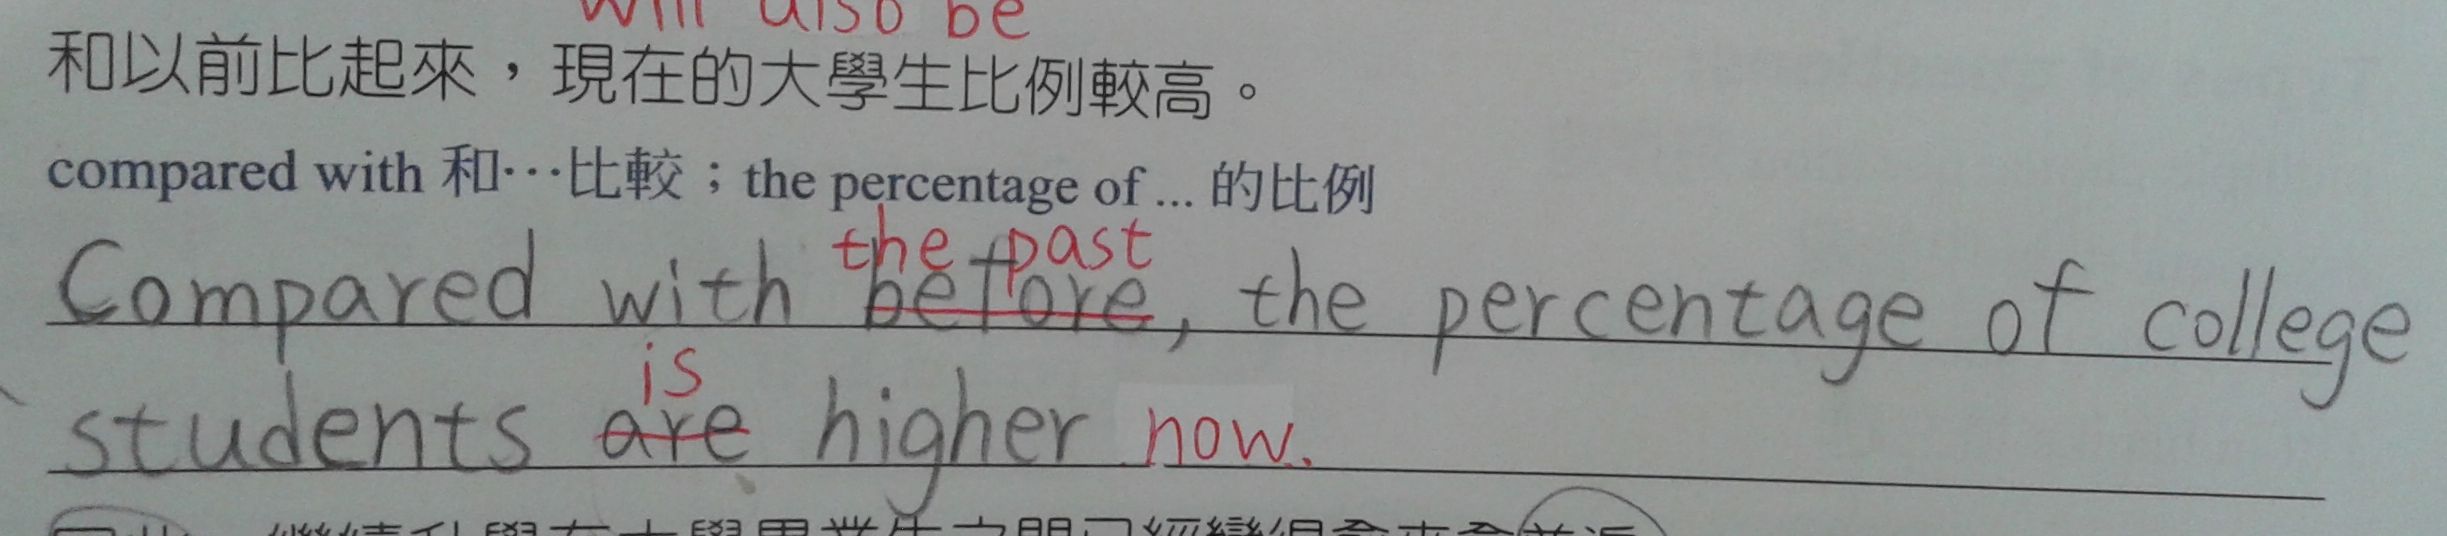 will also be
和以前比起來，現在的大學生比例較高。
compared with 和…比較；the percentage of ... 的比例
the past
Compared with before, the percentage of college
is
students are higher now.